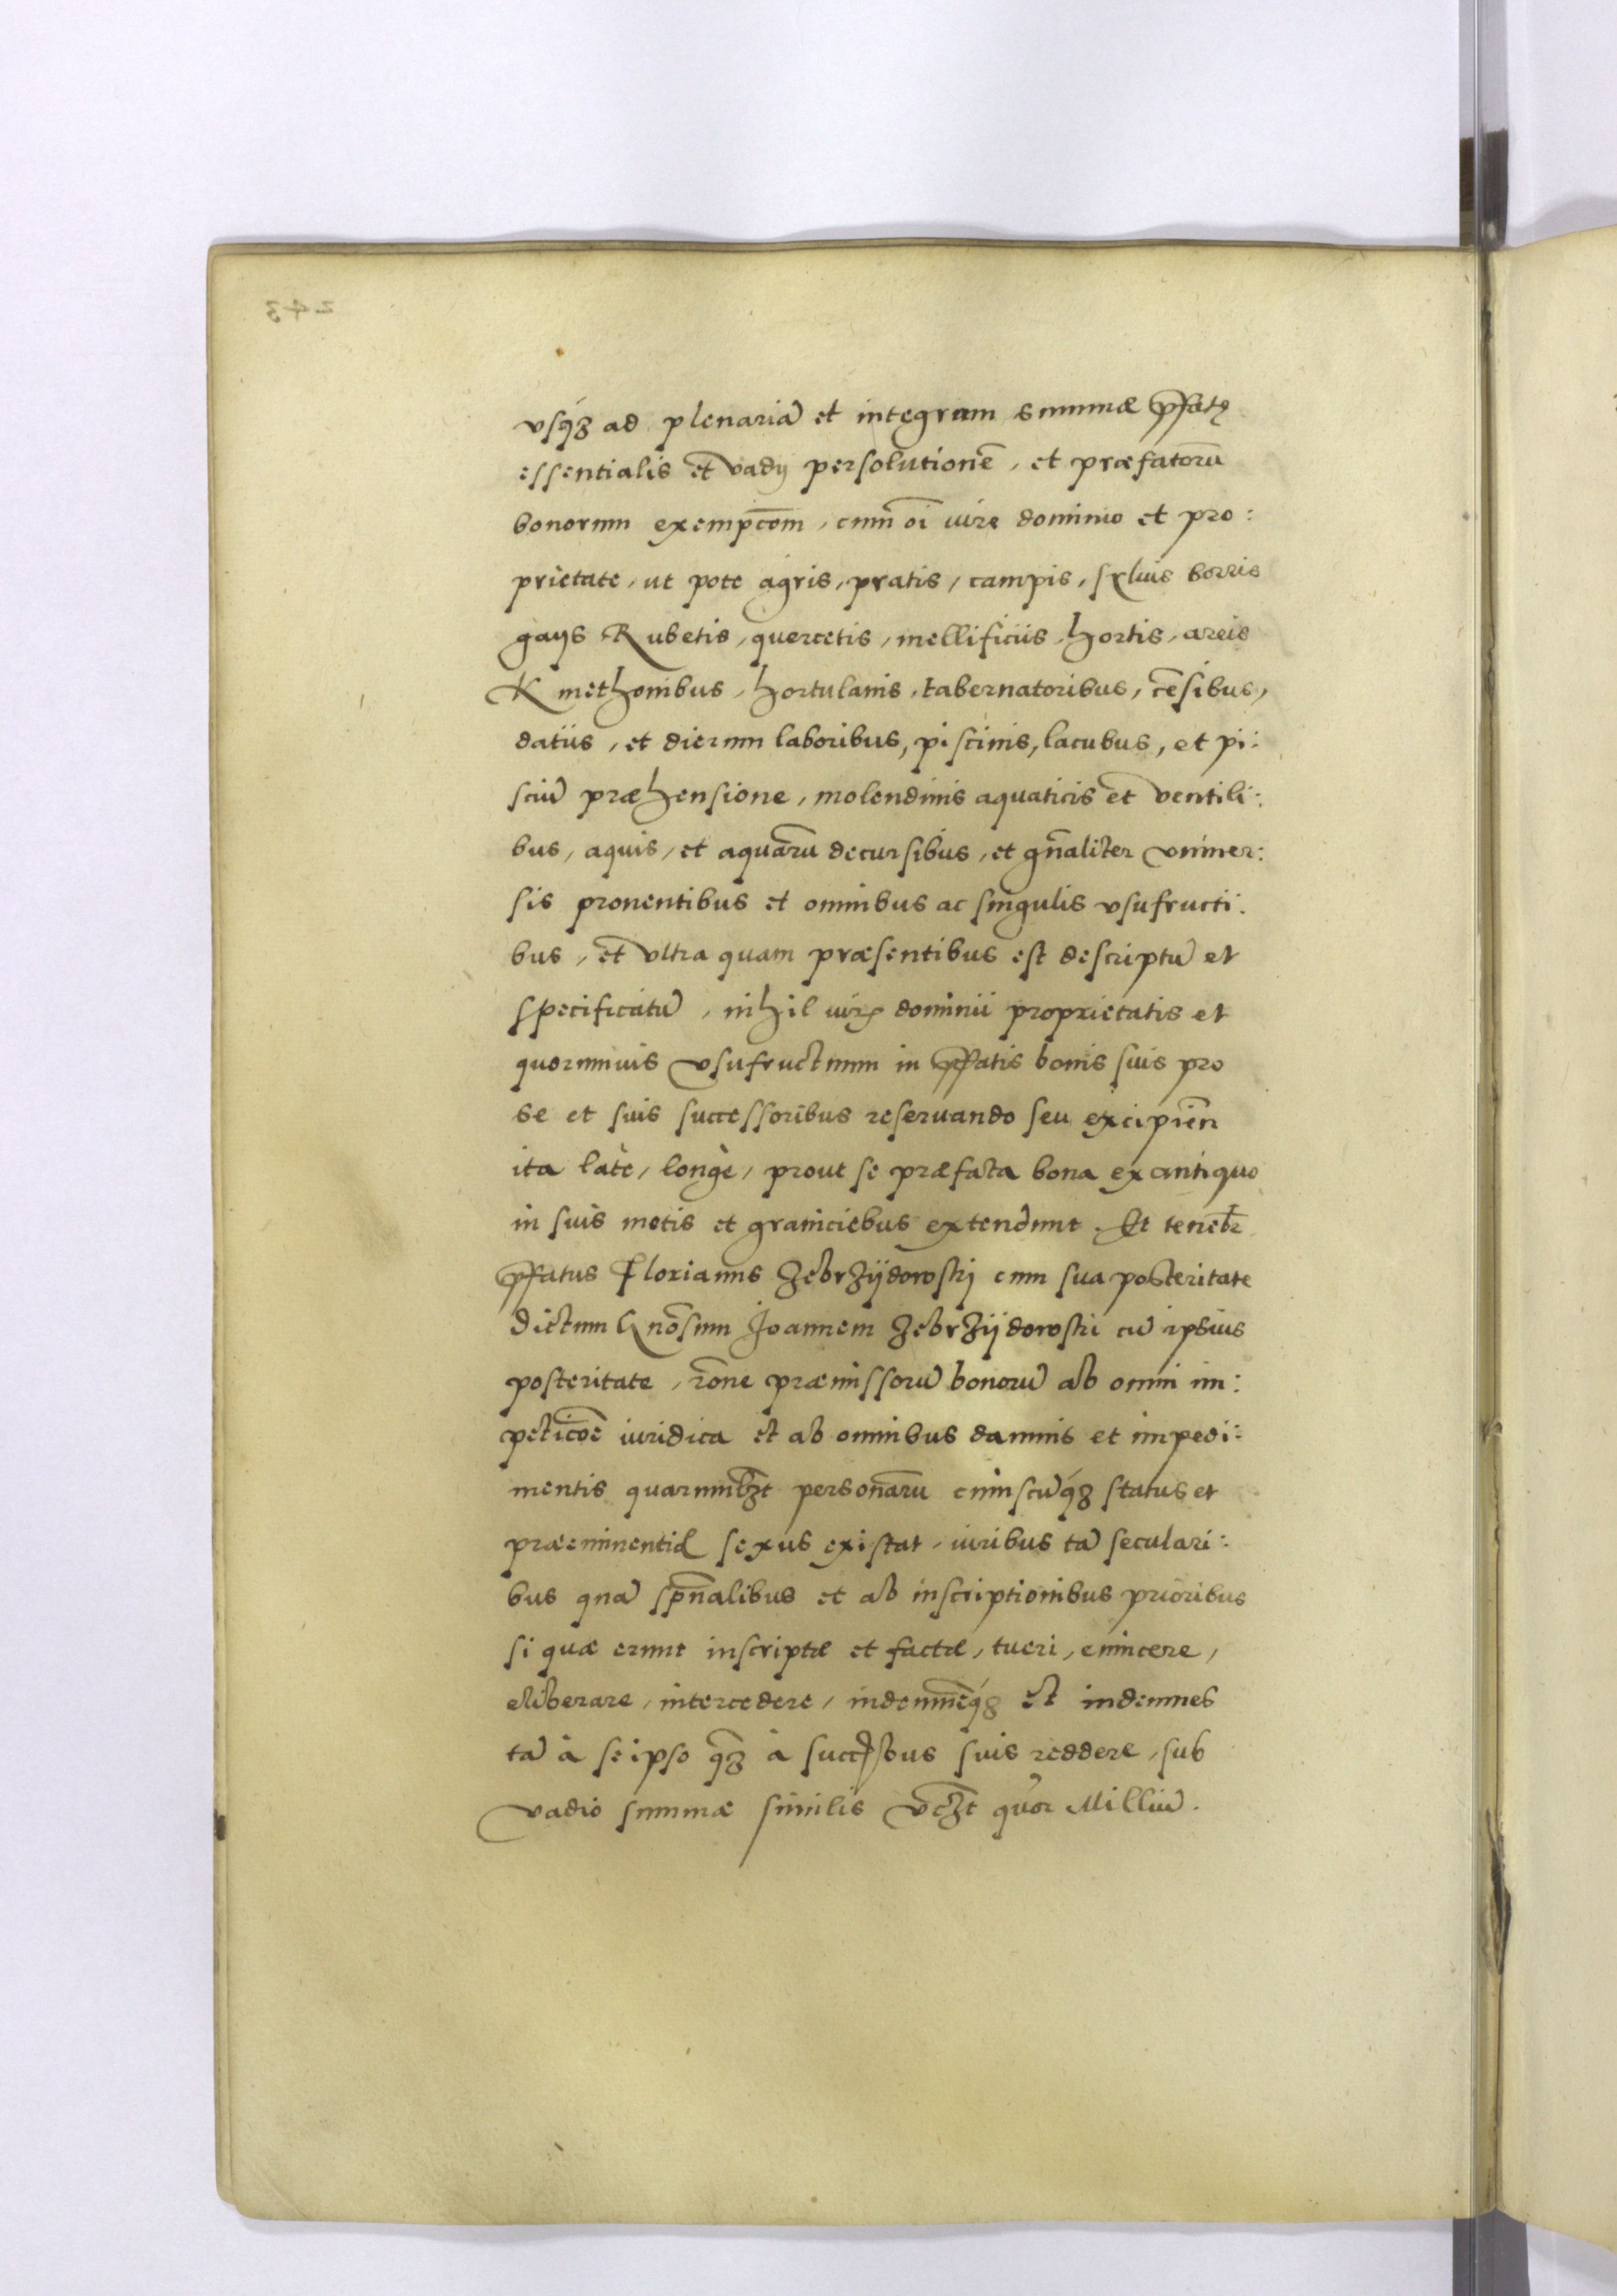 usq́ꝫ ad plenariā et integram summæ p̄fatę
essentialis et vadij persolutionē, et præfatorū
bonorum exempc̄om, cum oī iure dominio et pro:
prietate, ut pote agris, pratis, campis, sylvis borris
gays Rubetis, quercetis, mellificiis, hortis, areis
Kmethonibus, hortulanis, tabernatoribus, cēsibus,
datiis, et dierum laboribus, piscinis, lacubus, et pi:
sciū præhensione, molendinis aquaticis et ventili:
bus, aquis, et aquarū decursibus, et gn̄aliter univer:
sis proventibus et omnibus ac singulis usufructi:
bus, et ultra quam præsentibus est descriptū et
specificatū, nihil iurꝭ dominii proprietatis et
quorumvis usufructuum in p̄fatis bonis suis pro
se et suis successoribus reservando seu excipień
ita latè, longè, prout se præfata bona ex antiquo
in suis metis et graniciebus extendunt. Et teneb̄r
p̄fatus Florianus Zebrzÿdowskj cum sua posteritate
dictum Gn̄osum Joannem Zebrzÿdowski cū ipsius
posteritate, rōne præmissorū bonorū ab omni im:
peticōe iuridica et ab omnibus damnis et impedi:
mentis quarumlꝫt personarū cuiuscūq́ꝫ status et
præeminentiæ sexus existat, iuribus tā seculari:
bus quā sp̄ūalibus et ab inscriptionibus prioribus
si quæ erunt inscriptæ et factæ, tueri, evincere,
eliberare, intercedere, indemnēq́ꝫ et indemnes
tā à seipso q̄ꝫ à succꝭsbus suis reddere, sub
vadio summæ similis vꝫt quor Milliū.